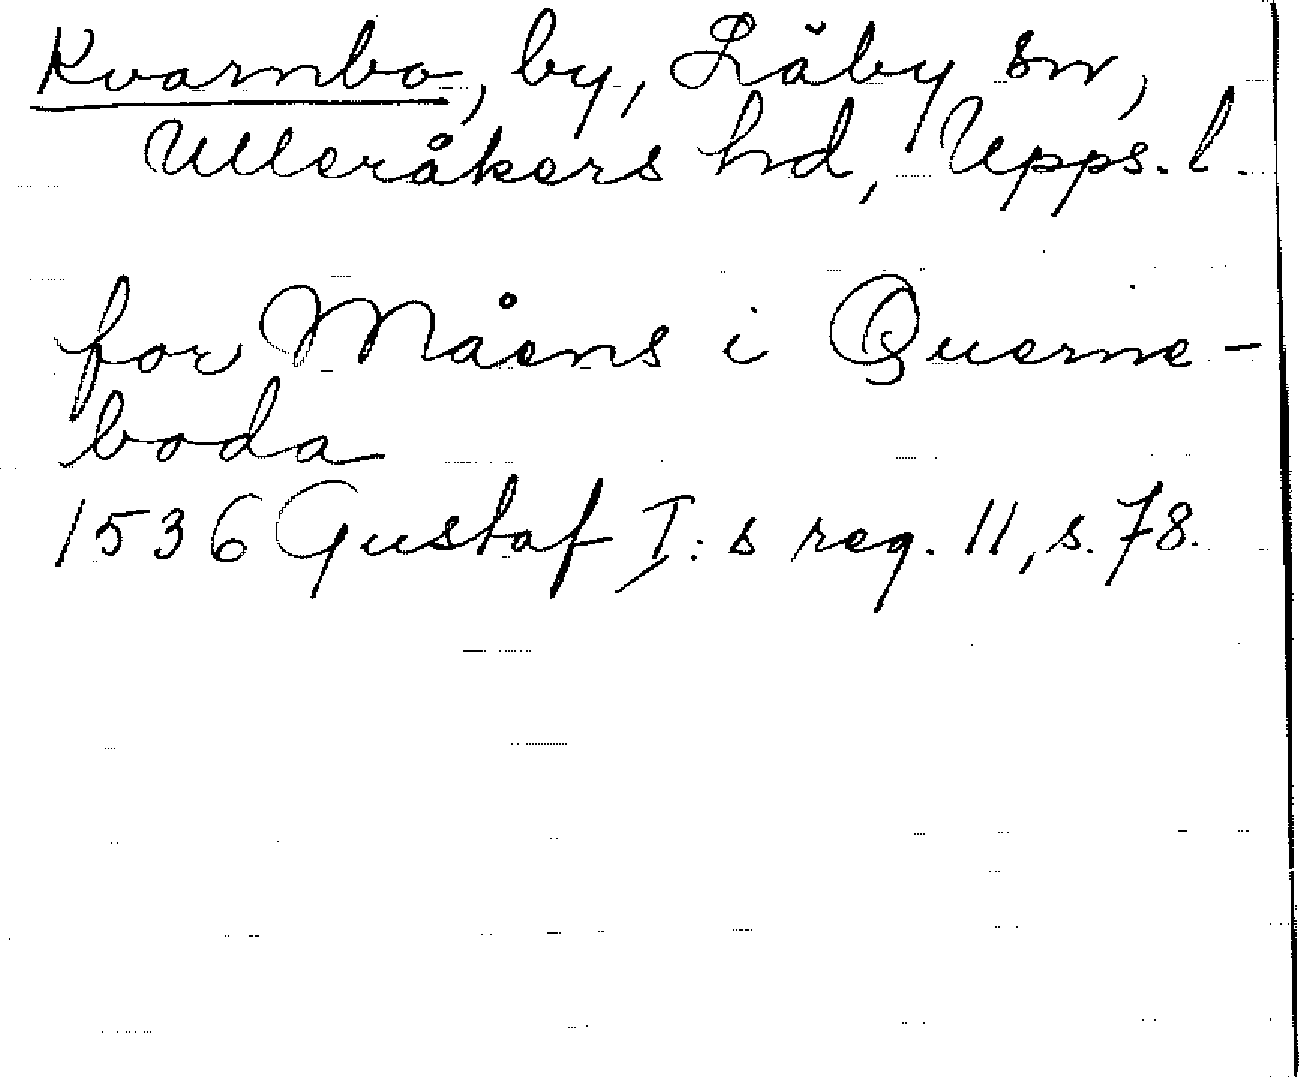 Kvarnbo, by, Läby sn,
Ulleråkers hd, Upps. l.
for Måens i Querne-
boda
1536 Gustaf I: s reg. 11, s. 78.